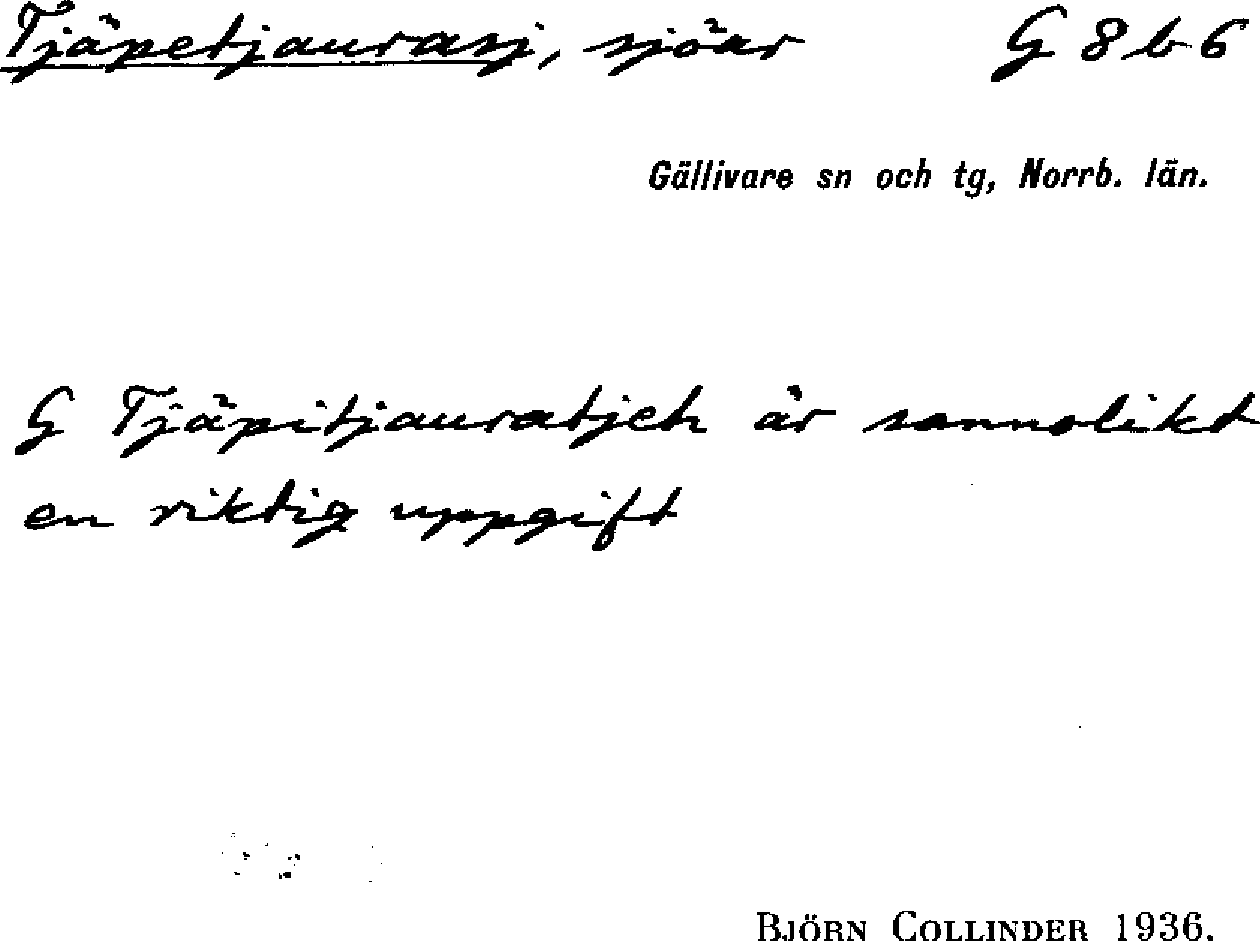 Tjäpetjaurasj, sjöar G 8 b 6
Gällivare sn och tg, Norrb. län.
G Tjäpitjauratjeh är sannolikt
en riktig uppgift
BJÖRN COLLINDER 1936.